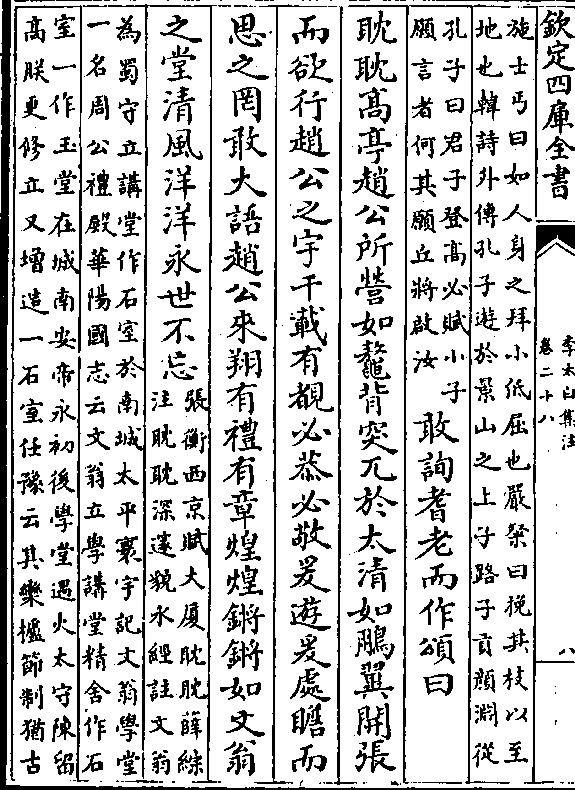 欽定四庫全書
李太白集注
卷二十八
八
施士丐曰如人身之拜小低屈也嚴粲曰挽其枝以至
地也韓詩外傳孔子遊於景山之上子路子貢顔淵從
孔子曰君子登高必賦小子
願言者何其願丘將啟汝
敢詢耆老而作頌曰
耽耽高亭趙公所營如鼇背突兀於太清如鵬翼開張
而欲行趙公之宇千載有覩必恭必敬爰遊爰處瞻而
思之罔敢大語趙公來翔有禮有章煌煌鏘鏘如文翁
之堂清風洋洋永世不忘
張衡西京賦大厦耽耽薛綜
注耽耽深邃貌水經註文翁
為蜀守立講堂作石室於南城太平寰宇記文翁學堂
一名周公禮殿華陽國志云文翁立學講堂精舍作石
室一作玉堂在城南安帝永初後學堂遇火太守陳留
高朕更修立又增造一石室任豫云其欒櫨節制猶古